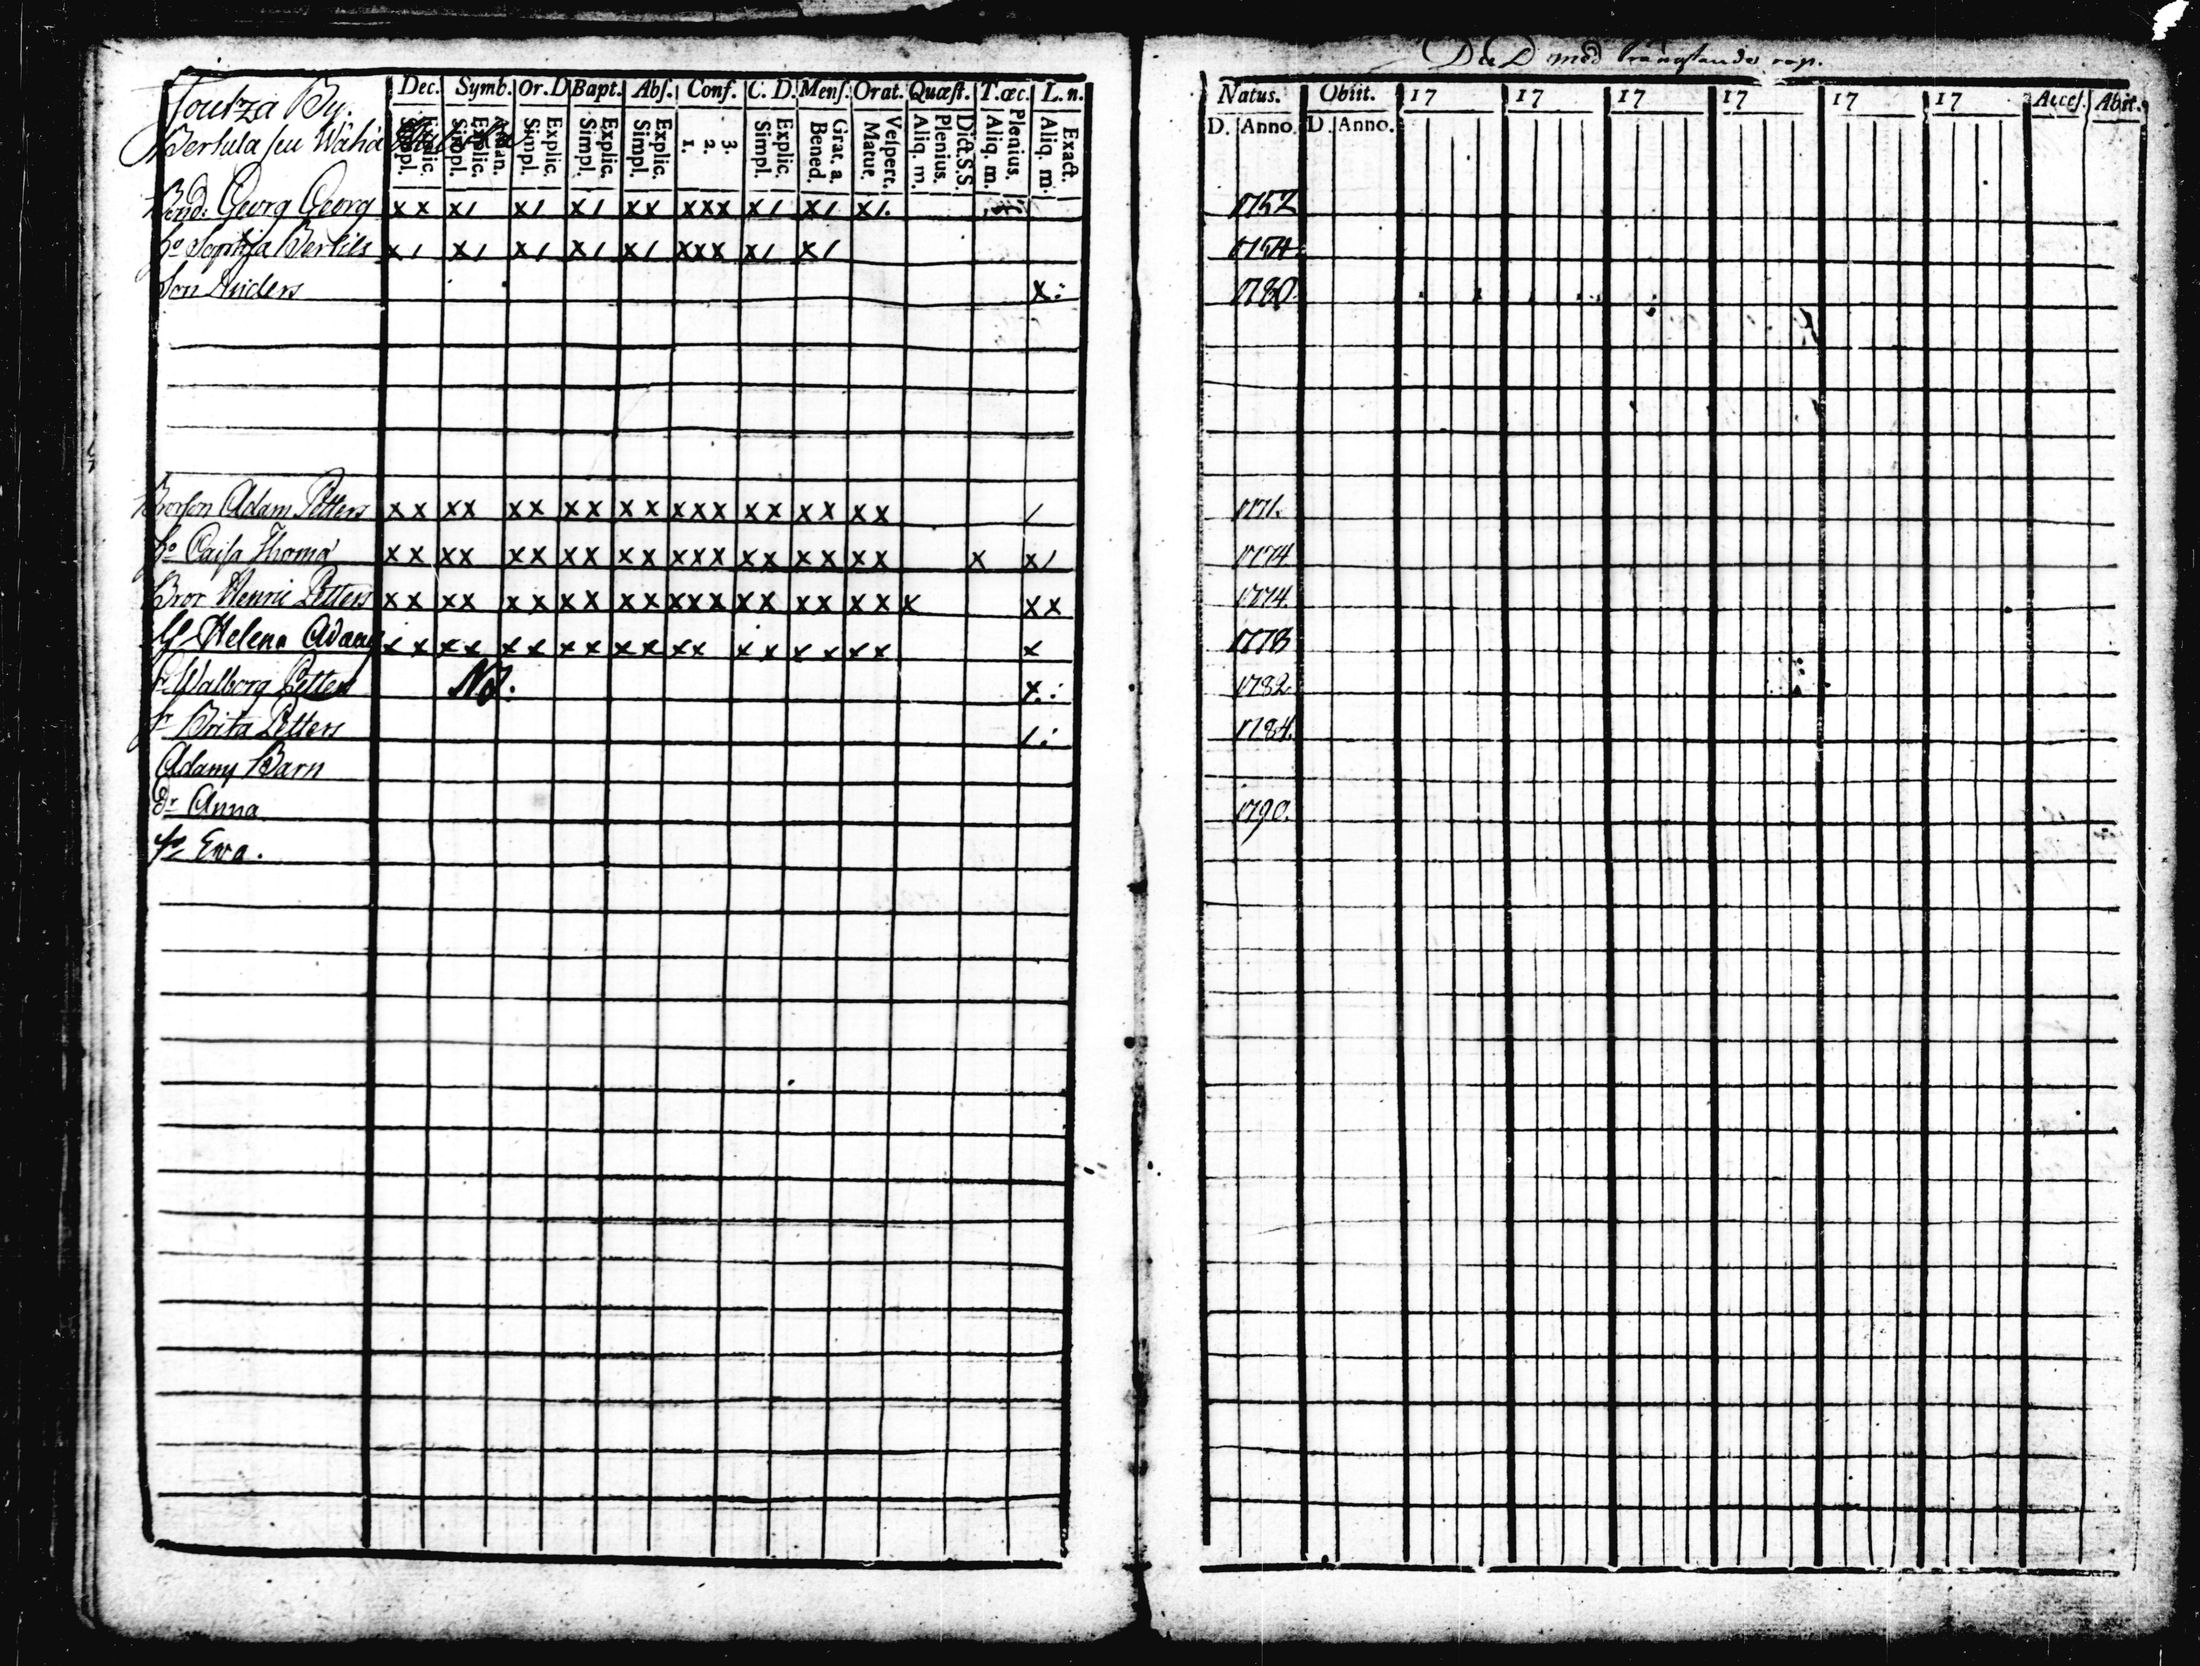 Joutza By.
Bertula seu Wähä
Dec. Symb. Or. D Bapt. Abs. Conf. C. D. Mens. Orat. Quæst. T. œc. L. n.
Simpl. Explic. Simpl. Explic. Athan. Simpl. Explic. Simpl. Explic. Simpl. Explic. 1. 2. 3. Simpl. Explic. Bened. Grat. a. Matut. Vespert. Aliq. m. Plenius. Dict. S. S. Aliq. m. Plenius. Aliq. m. Exact.
Bond: Georg Georg x x x / x / x / x x x x x x / x / x /.
ho Sophja Bertils x / x / x / x / x / x x x x / x /
Son Anders x :
Brorson Adam Petters x x x x x x x x x x x x x x x x x x x /
ho Caisa Thoma x x x x x x x x x x x x x x x x x x x x x /
Bror Henric Petters x x x x x x x x x x x x x x x x x x x x x x
ho Helena Adams x x x x x x x x x x x x x x x x x x x
Sr Walborg Petters NB. x :
Sr Brita Petters / :
Adams Barn
dr Anna
dr Ewa.
med
Natus. Obiit. 17 17 17 17 17 17 Acces. Abit.
D. Anno. D. Anno.
1752
1754
1780
1771.
1774
1774
1778
1782
1784.
1790.